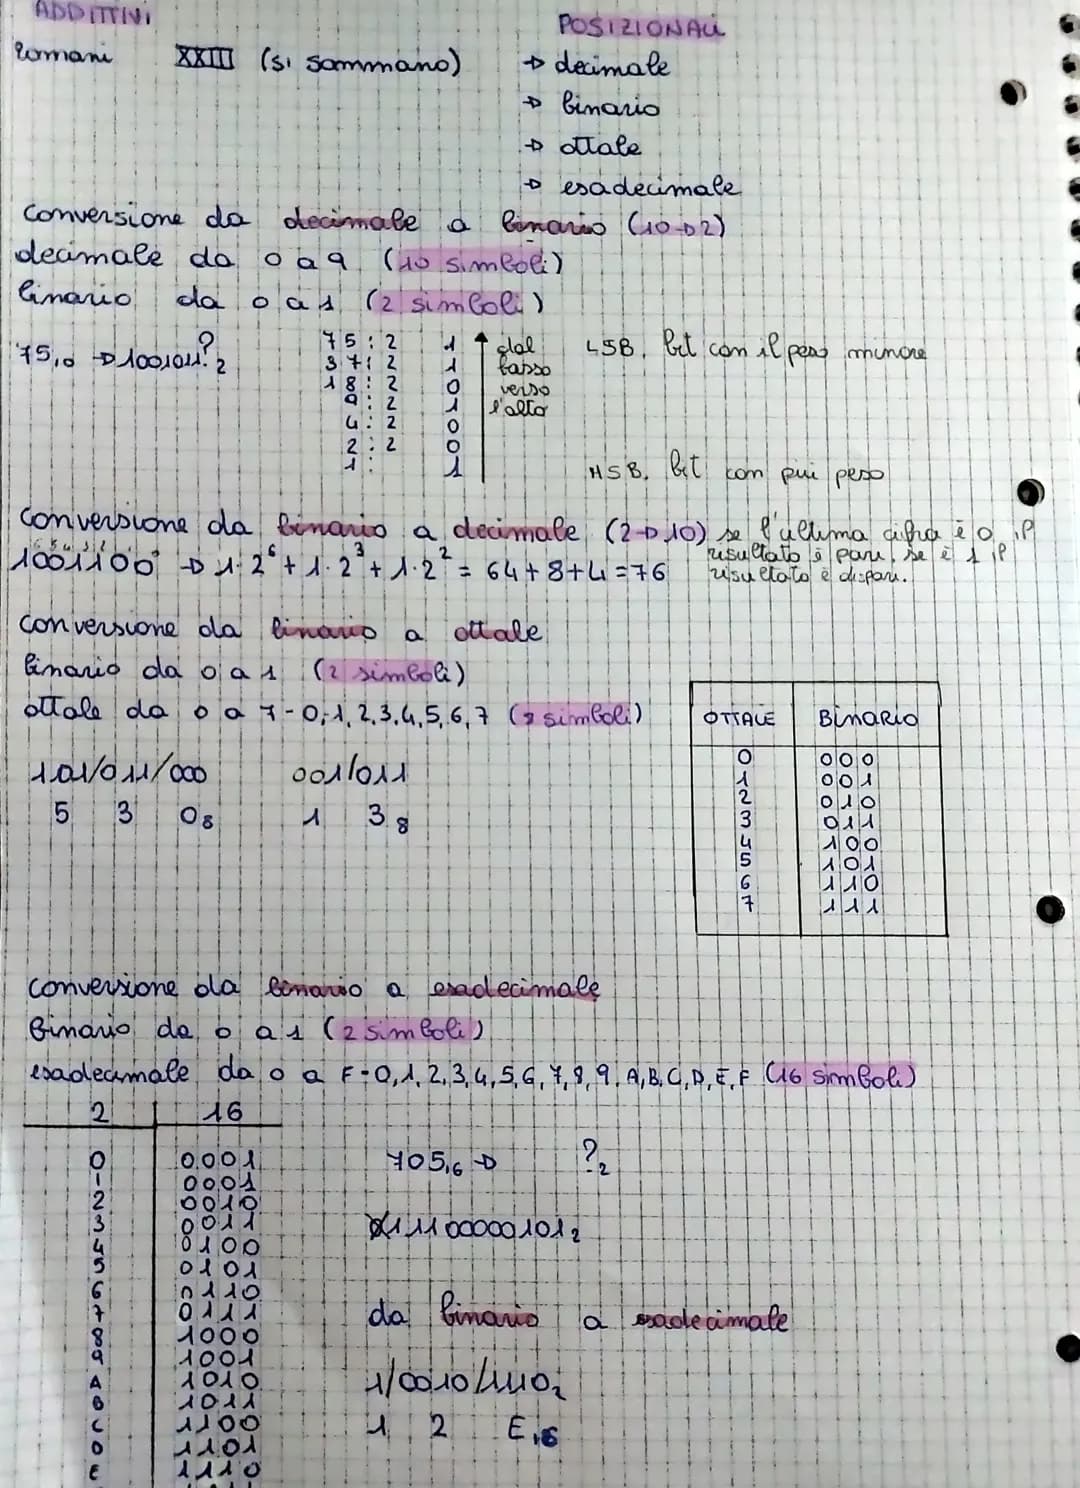 ADDITTIVI
POSIZIONALI
Romani XXIII (si sommano)
→ decimale
→ binario
→ ottale
→ esadecimale
conversione da decimale a binario (10→2)
decimale da 0 a 9 (10 simboli)
binario da 0 a 1 (2 simboli)
75₁₀ → 1001011?₂
75:2 1
37:2 1
18:2 0
9:2 1
4:2 0
2:2 0
1: 1
dal
basso
verso
l'alto
LSB. bit con il peso minore
MSB. bit con più peso
conversione da binario a decimale (2→10) se l'ultima cifra è 0 il
risultato è pari, se è 1 il
risultato è dispari.
1001100 → 1·2⁶ + 1·2³ + 1·2² = 64+8+4=76
conversione da binario a ottale
binario da 0 a 1 (2 simboli)
ottale da 0 a 7-0,1,2,3,4,5,6,7 (8 simboli)
101/011/000 001/011
5 3 0₈ 1 3₈
OTTALE BINARIO
0 000
1 001
2 010
3 011
4 100
5 101
6 110
7 111
conversione da binario a esadecimale
Binario da 0 a 1 (2 simboli)
esadecimale da 0 a F-0,1,2,3,4,5,6,7,8,9,A,B,C,D,E,F (16 simboli)
2 16
0 0001
1 0001
2 0010
3 0011
4 0100
5 0101
6 0110
7 0111
8 1000
9 1001
A 1010
B 1011
C 1100
D 1101
E 1110
705₁₆ → ?₂
011100000101₂
da binario a esadecimale
1/0010/1110₂
1 2 E₁₆